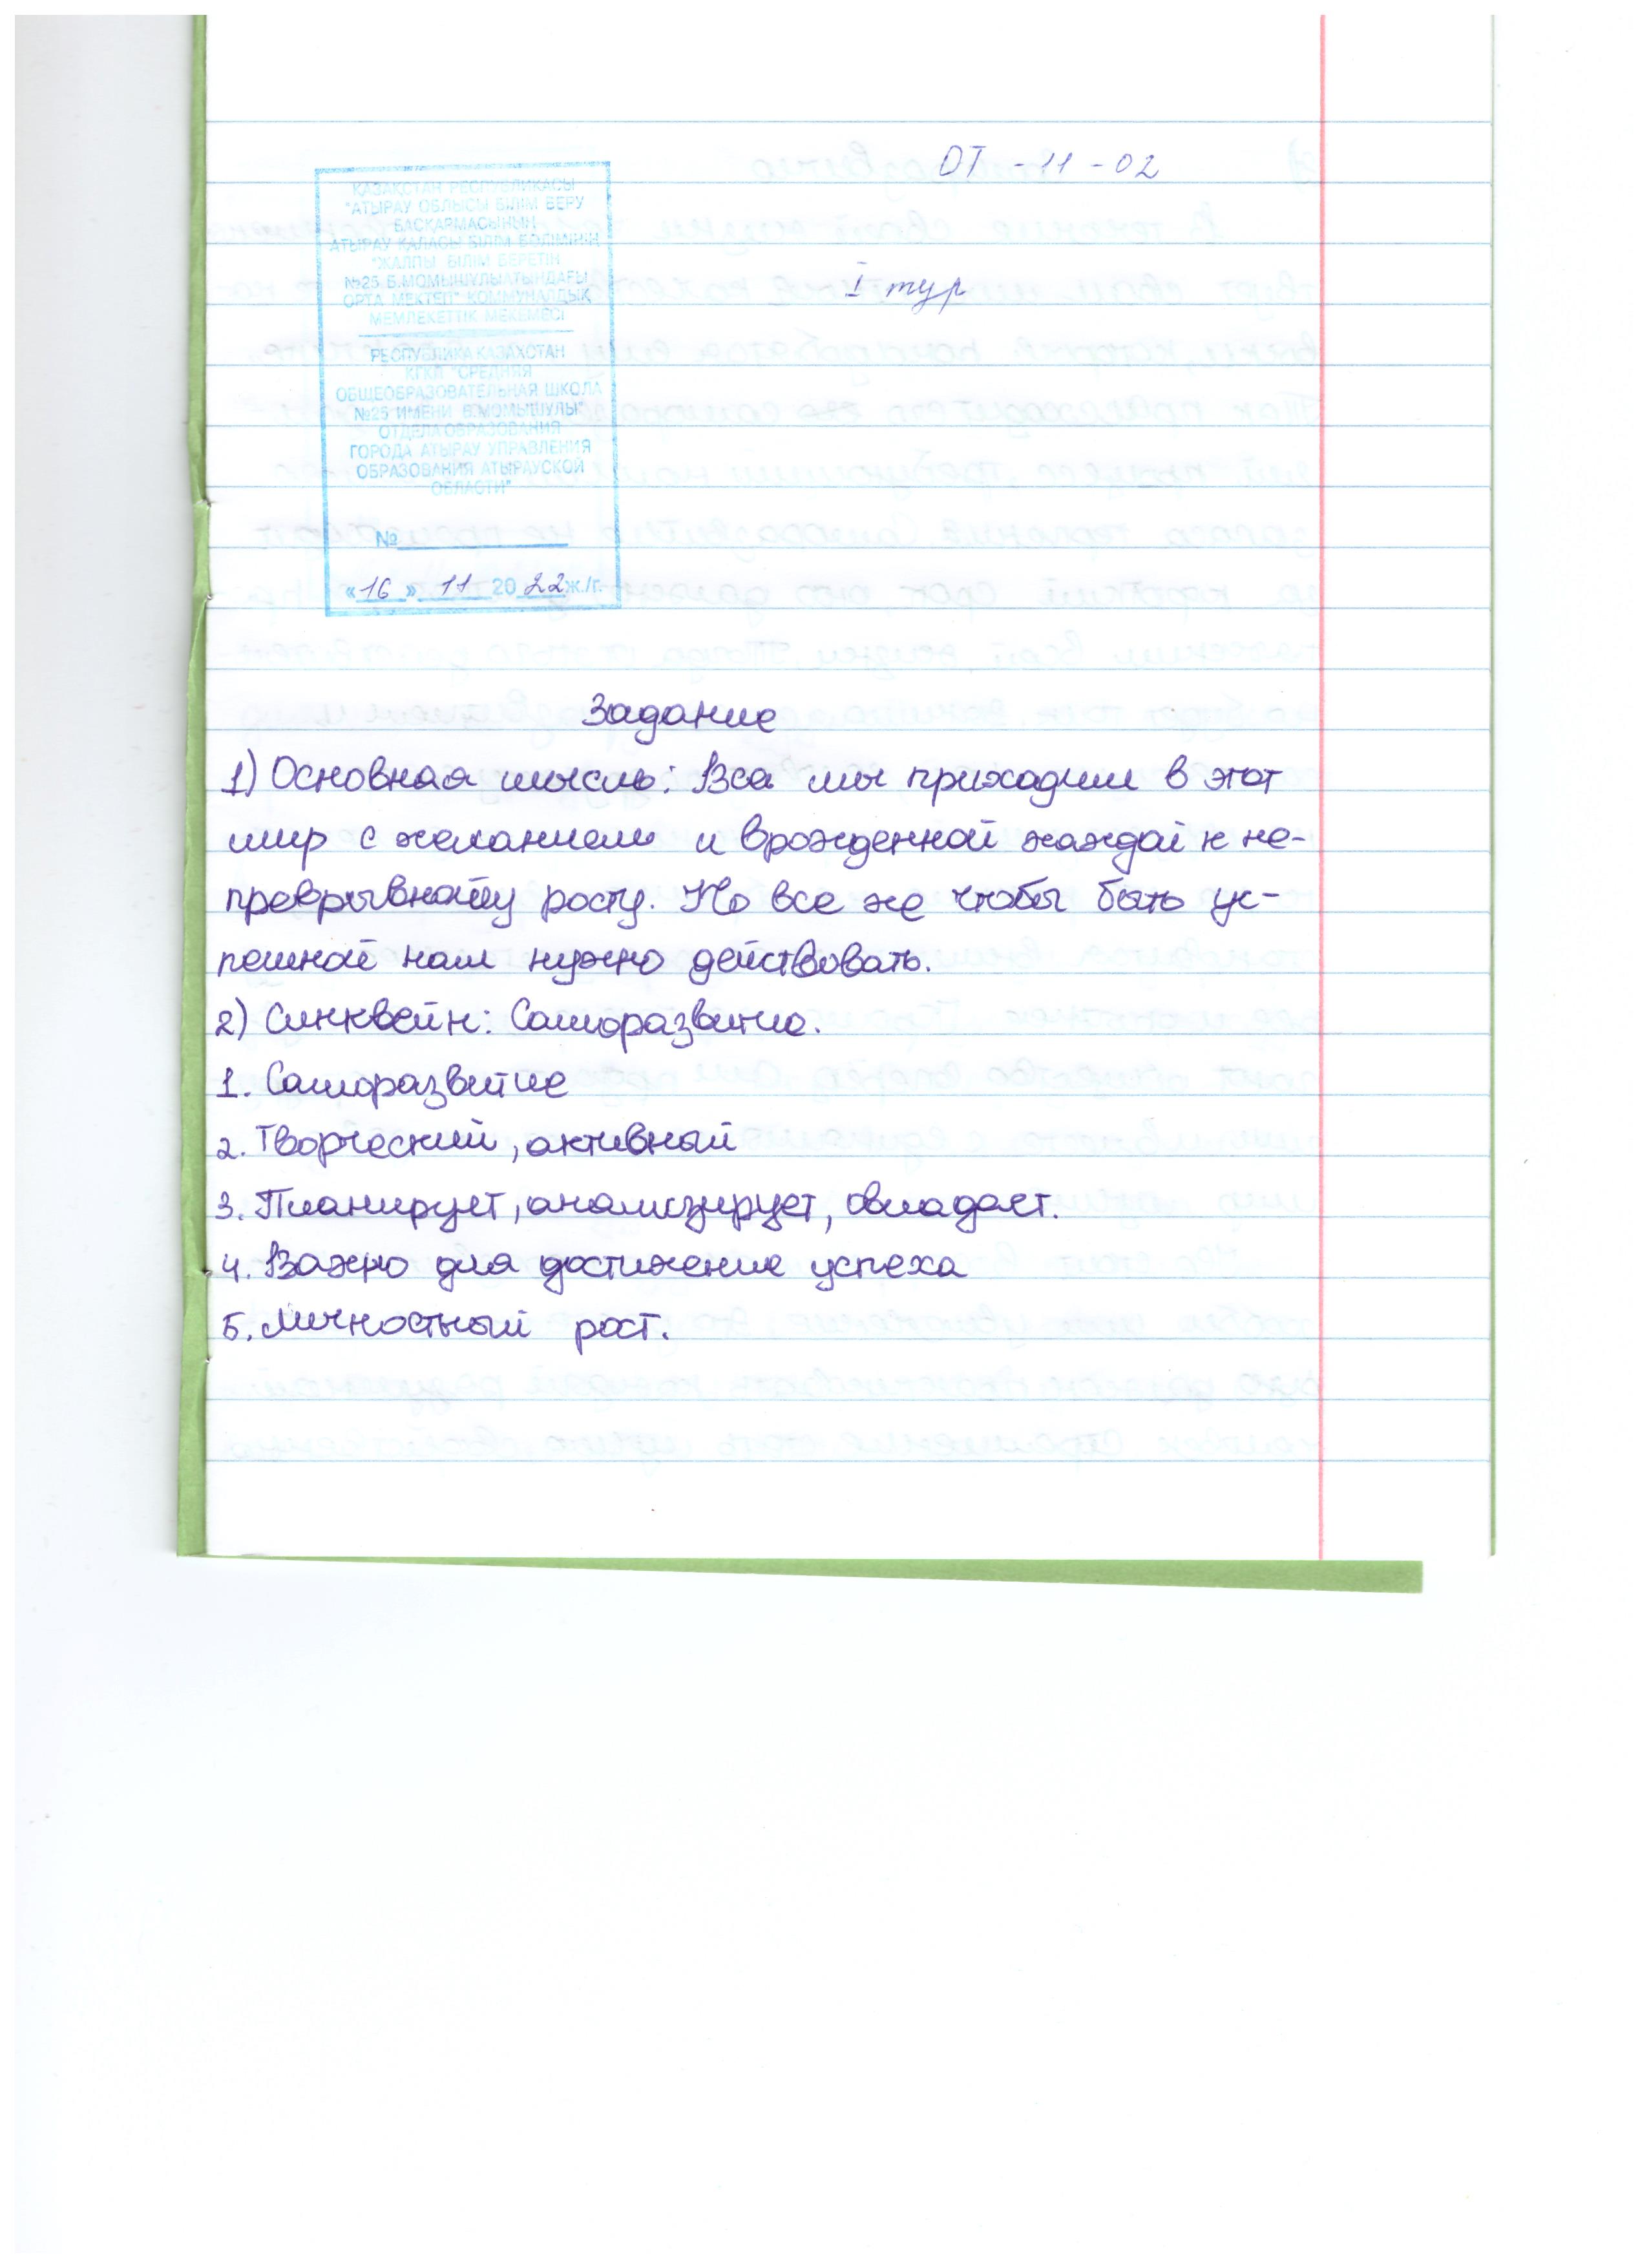 ОТ - 11 - 02
ҚАЗАҚСТАН РЕСПУБЛИКАСЫ
"АТЫРАУ ОБЛЫСЫ БІЛІМ БЕРУ
БАСҚАРМАСЫНЫҢ
АТЫРАУ ҚАЛАСЫ БІЛІМ БӨЛІМІНІҢ
"ЖАЛПЫ БІЛІМ БЕРЕТІН
№25 Б.МОМЫШҰЛЫ АТЫНДАҒЫ
ОРТА МЕКТЕП" КОММУНАЛДЫҚ
МЕМЛЕКЕТТІК МЕКЕМЕСІ
РЕСПУБЛИКА КАЗАХСТАН
КГКП "СРЕДНЯЯ
ОБЩЕОБРАЗОВАТЕЛЬНАЯ ШКОЛА
№25 ИМЕНИ Б.МОМЫШУЛЫ"
ОТДЕЛА ОБРАЗОВАНИЯ
ГОРОДА АТЫРАУ УПРАВЛЕНИЯ
ОБРАЗОВАНИЯ АТЫРАУСКОЙ
ОБЛАСТИ"
№
«16» 11 2022 ж./г.
I тур
Задание
1) Основная мысль: Все мы приходим в этот
мир с желанием и врожденной жаждой к не-
прерывному росту. Но все же чтобы быть ус-
пешной нам нужно действовать.
2) Синквейн: Саморазвитие.
1. Саморазвитие
2. Творческий, активный
3. Планирует, анализирует, овладает.
4. Важно для достижение успеха
5. Личностный рост.